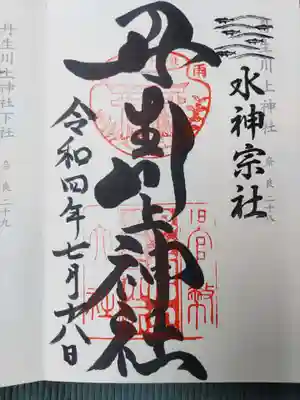 丹生川上神社
奈良二十八
水神宗社
丹生川上神社
令和四年七月十八日
丹生川上神社下社
奈良二十九